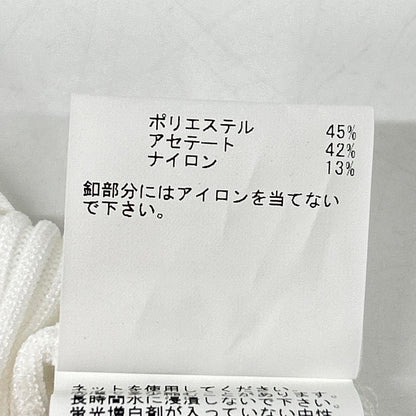 ポリエステル 45%
アセテート 42%
ナイロン 13%
釦部分にはアイロンを当てない
で下さい。
ネットを使用してください。
長時間水に浸漬しないで下さい。
蛍光増白剤が入っていない中性